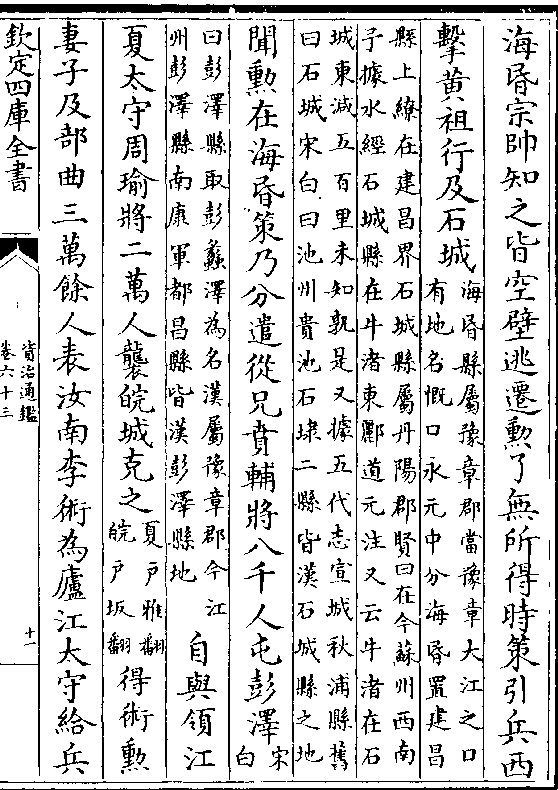 海昏宗帥知之皆空壁逃遷勲了無所得時策引兵西
撃黄祖行及石城
海昏縣屬豫章郡當豫章大江之口
有地名慨口永元中分海昏置建昌
縣上繚在建昌界石城縣屬丹陽郡賢曰在今蘇州西南
予據水經石城縣在牛渚東酈道元注又云牛渚在石
城東減五百里未知孰是又據五代志宣城秋浦縣舊
曰石城宋白曰池州貴池石埭二縣皆漢石城縣之地
聞勲在海昏策乃分遣從兄賁輔將八千人屯彭澤
宋
白
曰彭澤縣取彭蠡澤為名漢屬豫章郡今江
州彭澤縣南康軍都昌縣皆漢彭澤縣地
自與領江
夏太守周瑜將二萬人襲皖城克之
夏戸雅翻
皖戸坂翻
得術勲
妻子及部曲三萬餘人表汝南李術為廬江太守給兵
欽定四庫全書
資治通鑑
卷六十三
十一